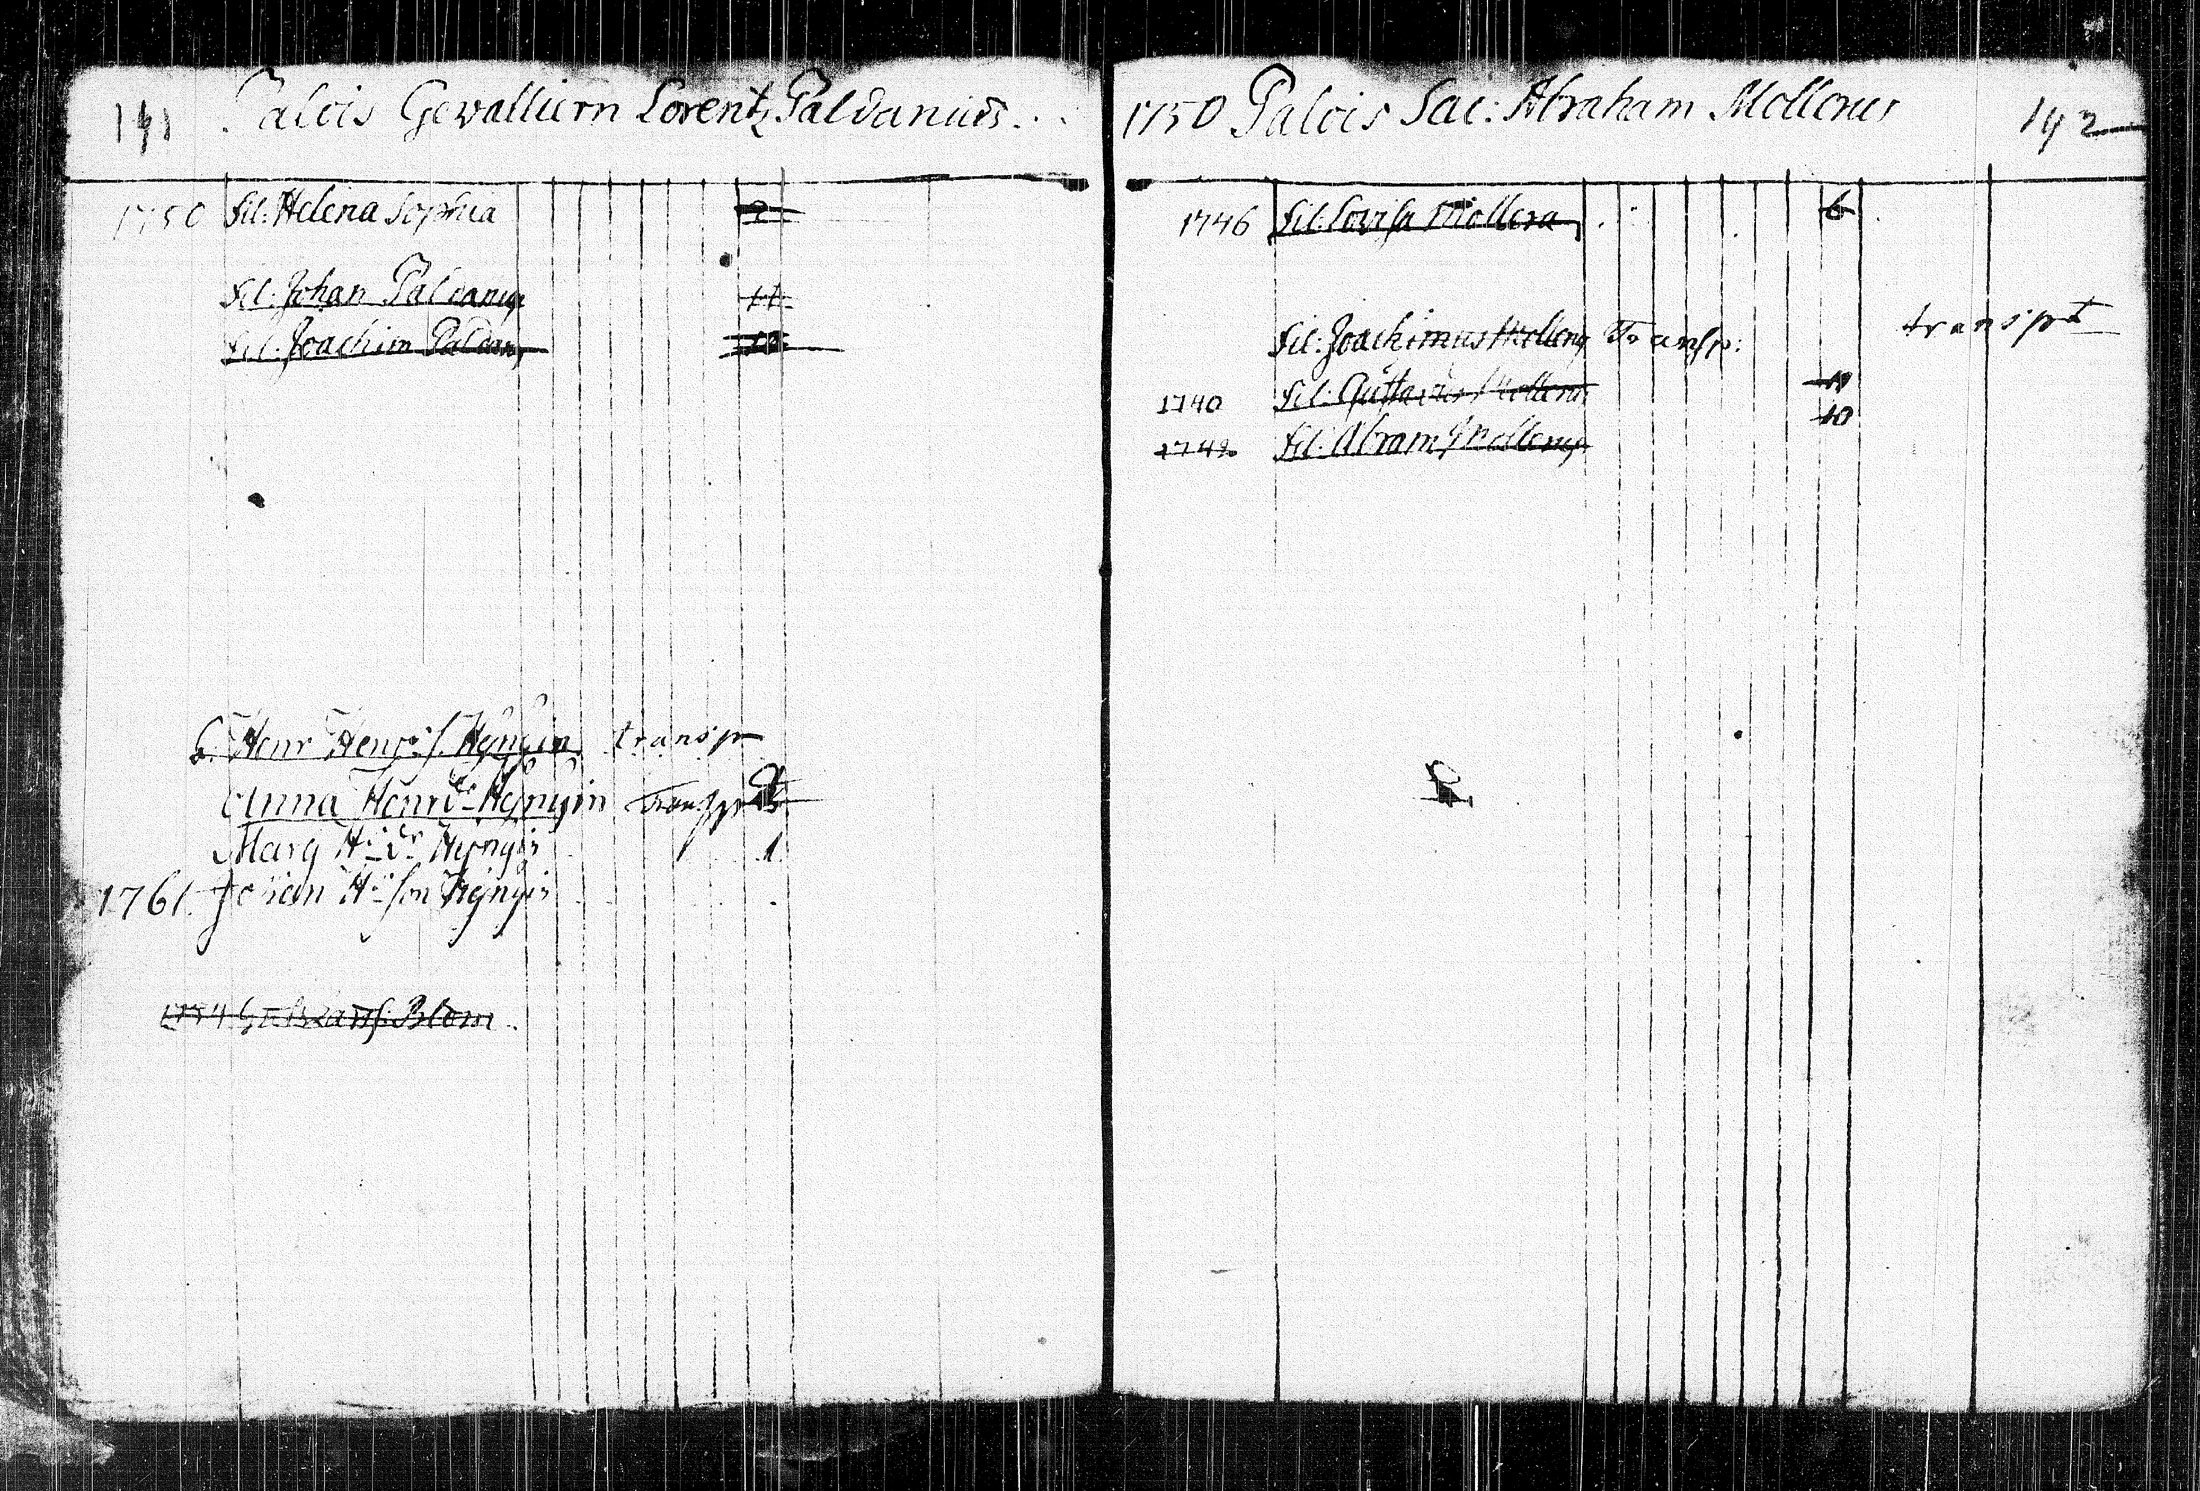 191 Palois Gevalliern Lorentz Paldanius
1750 fil: Helena Sophia 2
fil: Johan Paldanus 11
fil: Joachim Paldanus
Henr Henrs: s. transp
Anna Henrdr transp
Marg H: dr 1
1761. Johan H: son
1754 Blom
1750 Palois Sac: Abraham Mollerus 192
1746 fil: Lovisa Mollera 6
fil: Joachimus Mollerus Transp: transpt
1740 fil: Gustavus Mollerus 11
1742 fil: Abram Mollerus 10